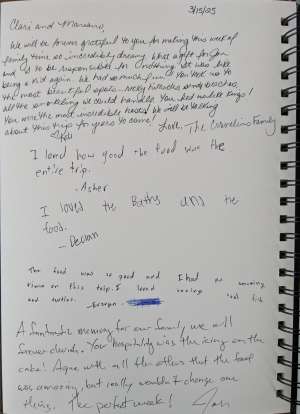 3/15/25
Clari and Mariano,
We will be forever grateful to you for making this week of
family time so incredibly dreamy. What a gift for Jon
and I to be responsible for nothing! It was like
being a kid again. We had so much fun. You took us to
the most beautiful spots - rocky beaches, sandy beaches,
all the snorkeling we could handle. You fed us like kings!
You were the most incredible hosts! We will be talking
about this trip for years to come!
Love, The Family
I loved how good the food was the
entire trip.
- Asher
I loved the Baths and the
food.
- Declan
The food was so good and I had an amazing
time on this trip. I loved seeing cool fish
and turtles.
A fantastic memory for our family we will
forever cherish. Your hospitality was the icing on the
cake! Agree with all the others that the food
was amazing, but really wouldn't change one
thing. The perfect week! Jon